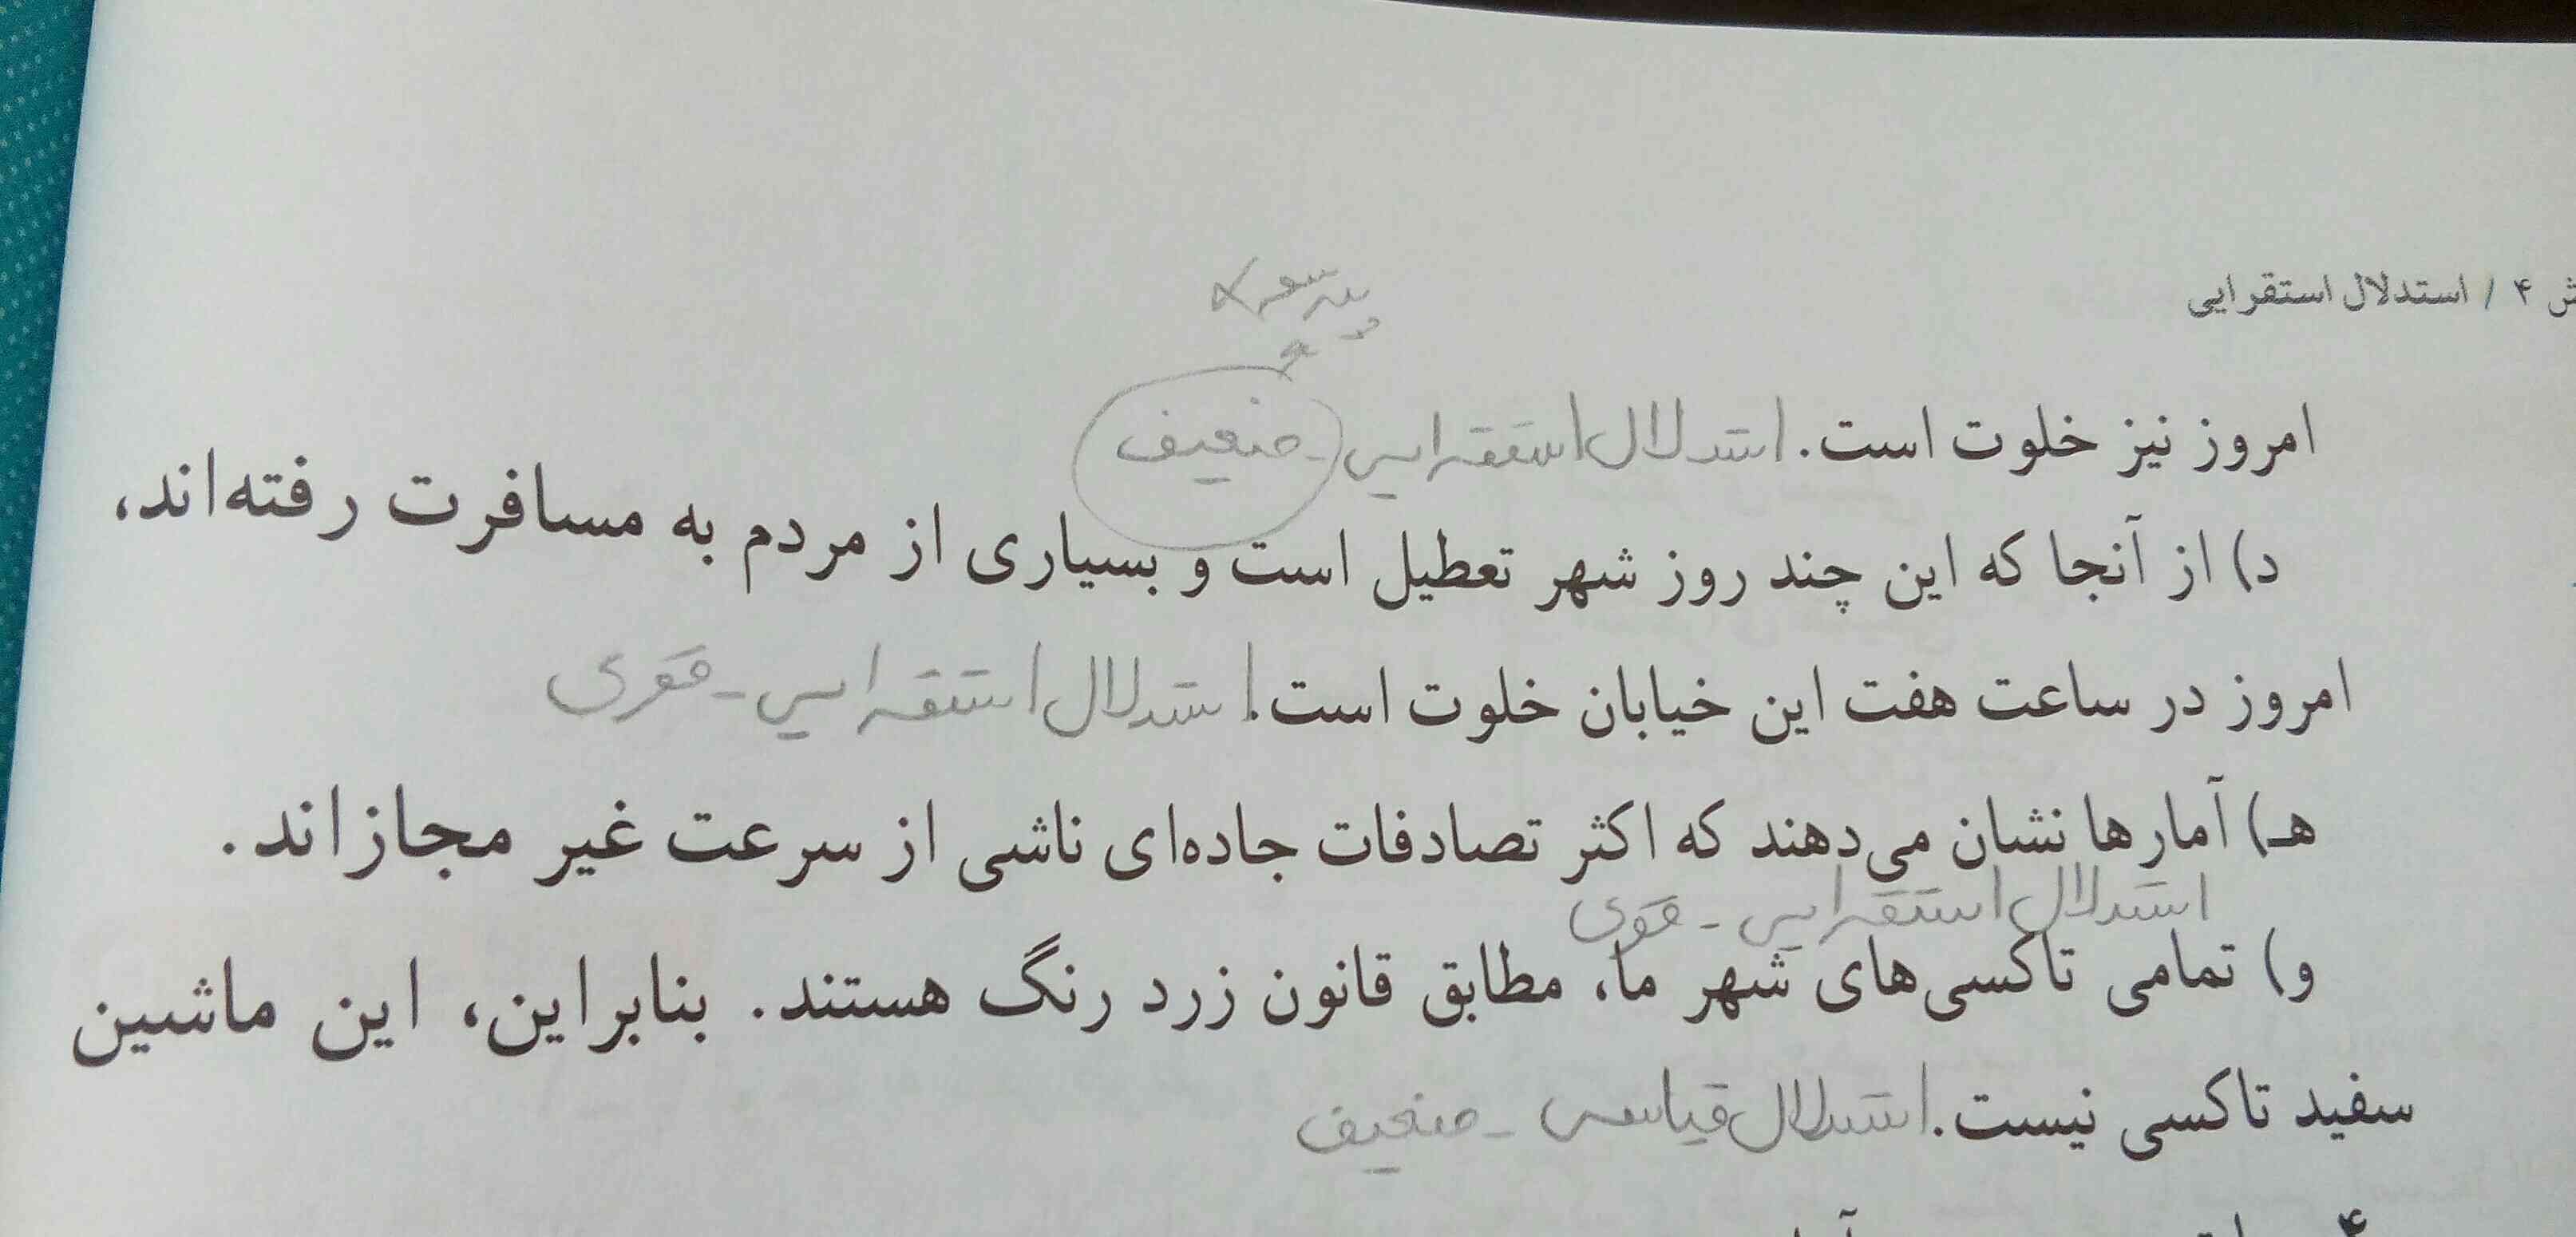 ش ۴ / استدلال استقرایی
پرسیده شود
امروز نیز خلوت است. استدلال استقرایی - ضعیف
د) از آنجا که این چند روز شهر تعطیل است و بسیاری از مردم به مسافرت رفته‌اند،
امروز در ساعت هفت این خیابان خلوت است. استدلال استقرایی - قوی
هـ) آمارها نشان می‌دهند که اکثر تصادفات جاده‌ای ناشی از سرعت غیر مجازاند.
استدلال استقرایی - قوی
و) تمامی تاکسی‌های شهر ما، مطابق قانون زرد رنگ هستند. بنابراین، این ماشین
سفید تاکسی نیست. استدلال قیاسی - ضعیف